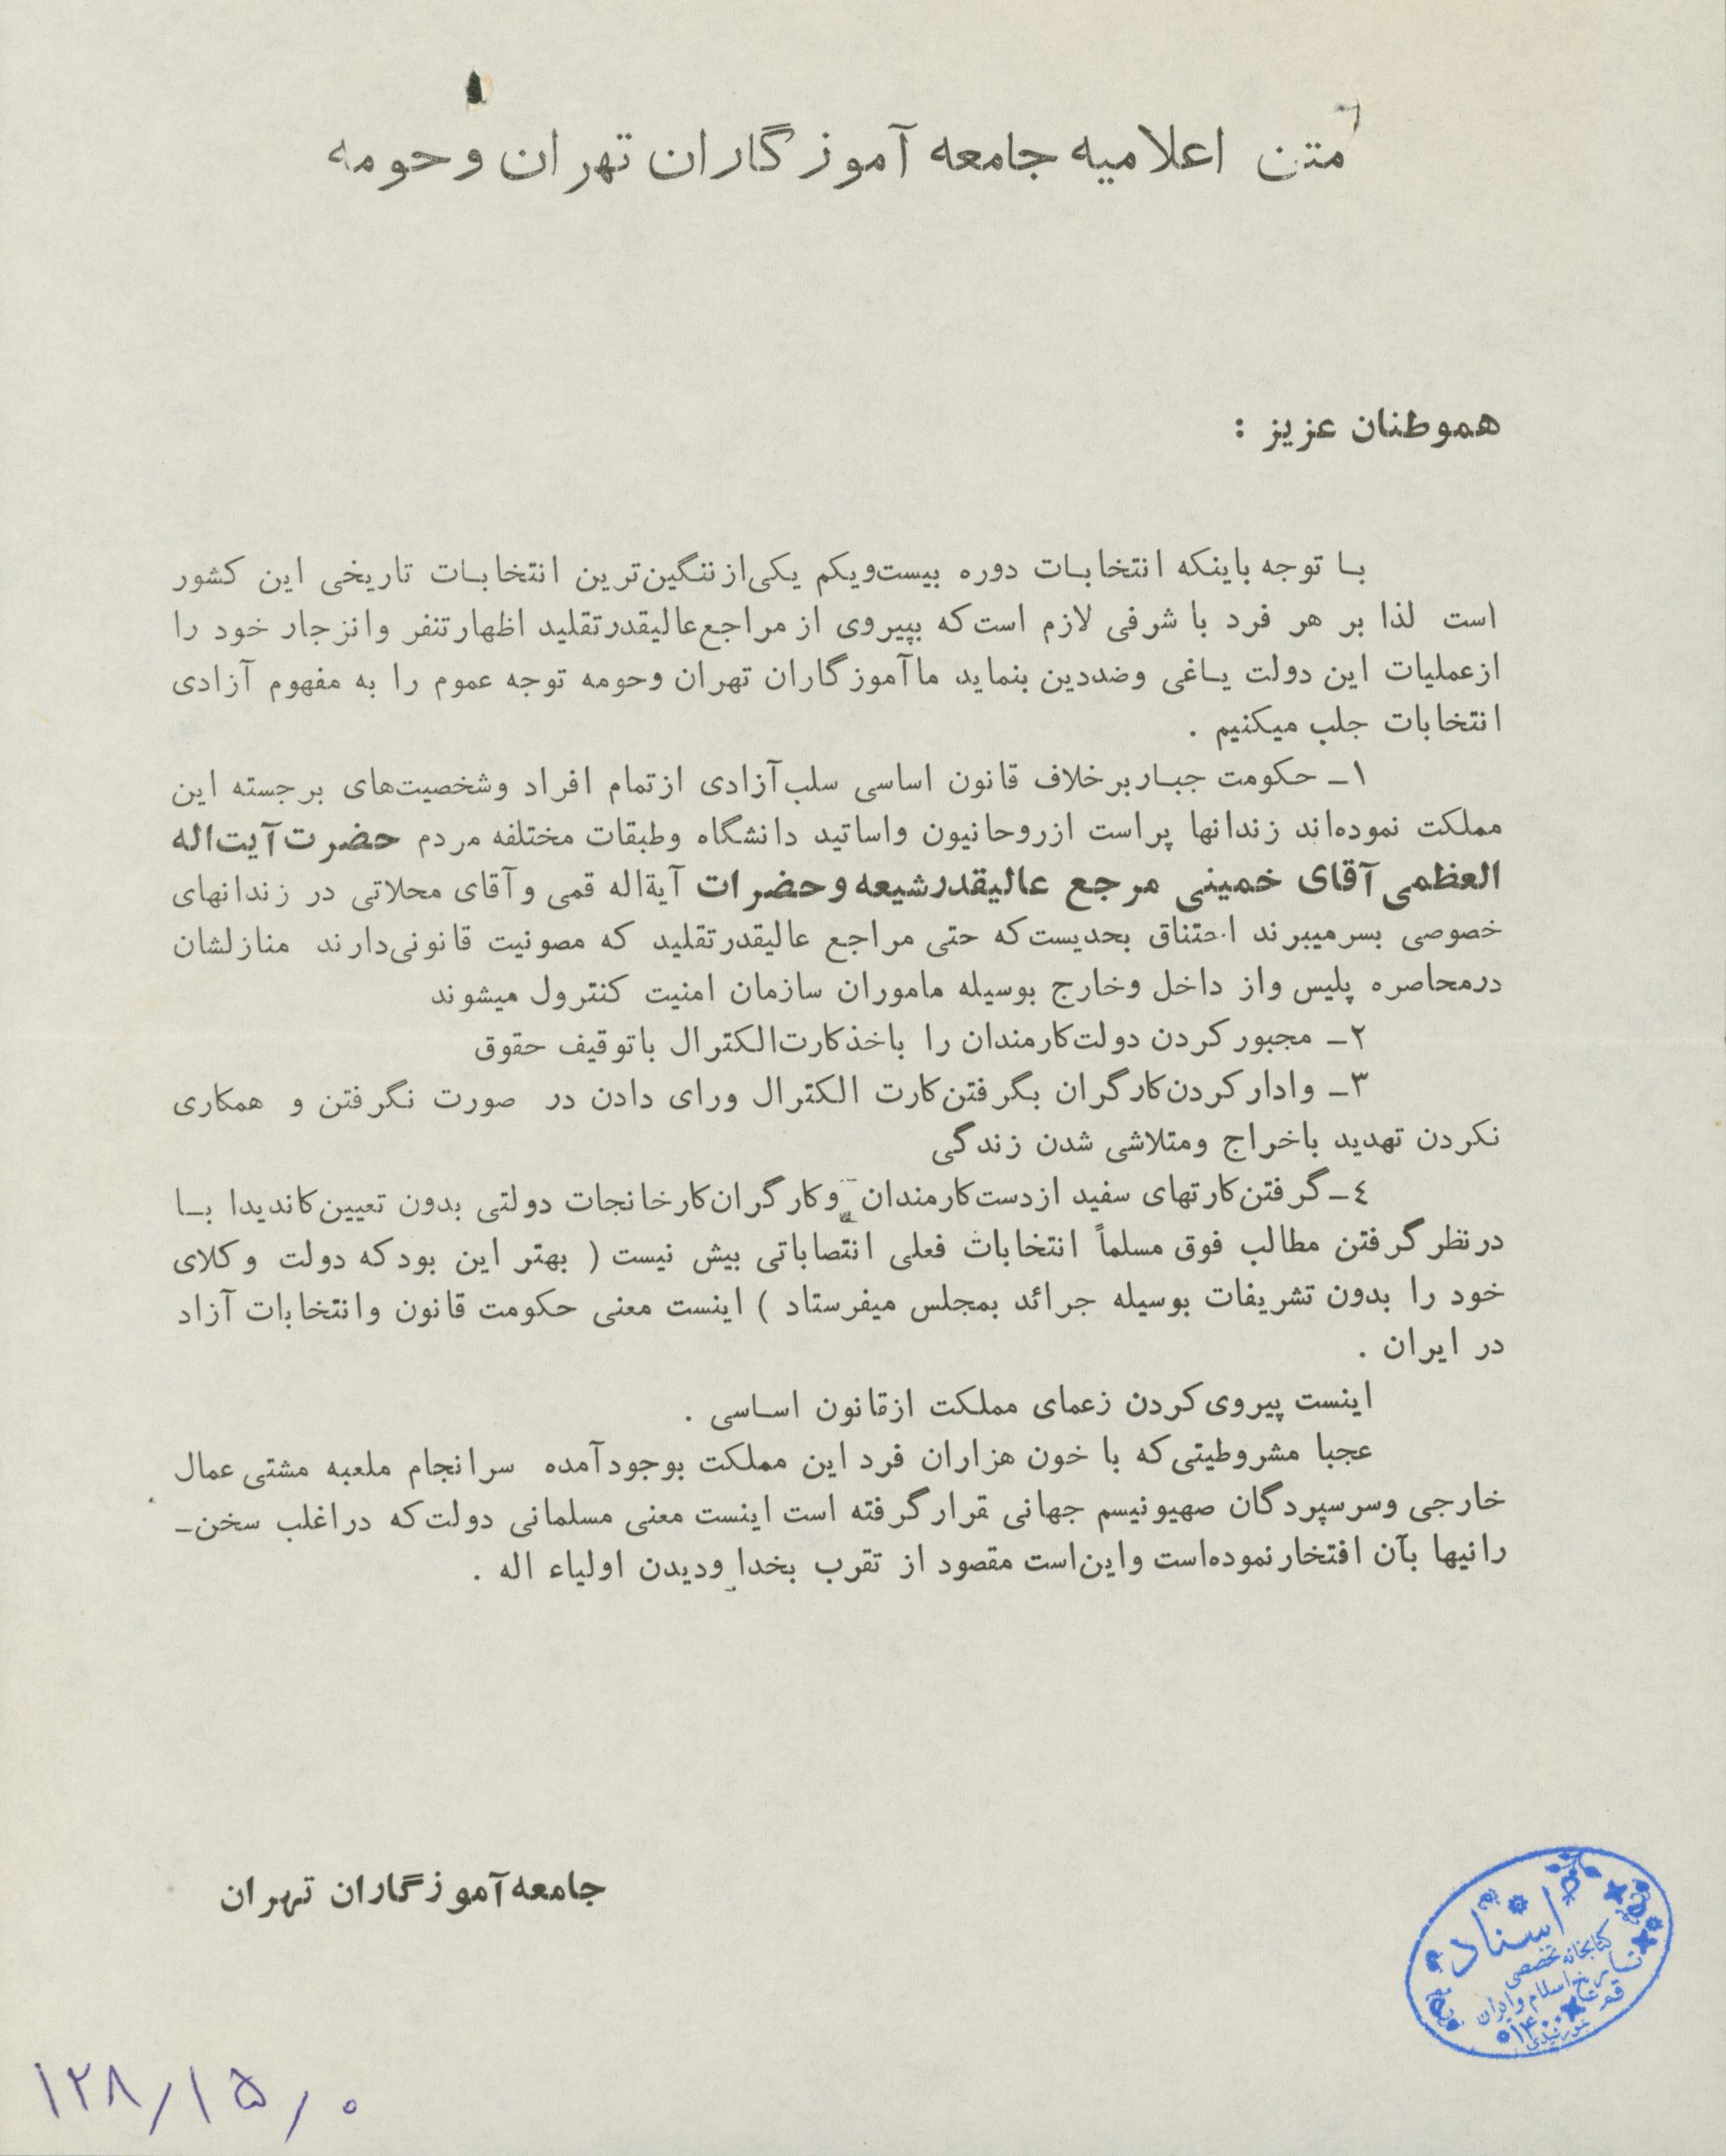 متن اعلامیه جامعه آموزگاران تهران وحومه
هموطنان عزیز :
با توجه باینکه انتخابات دوره بیست‌ویکم یکی‌از ننگین‌ترین انتخابات تاریخی این کشور
است لذا بر هر فرد با شرفی لازم است‌که بپیروی از مراجع‌عالیقدرتقلید اظهارتنفر وانزجار خود را
ازعملیات این دولت یاغی وضددین بنماید ماآموزگاران تهران وحومه توجه عموم را به مفهوم آزادی
انتخابات جلب میکنیم .
۱ـ حکومت جباربرخلاف قانون اساسی سلب‌آزادی ازتمام افراد وشخصیت‌های برجسته این
مملکت نموده‌اند زندانها پراست ازروحانیون واساتید دانشگاه وطبقات مختلفه مردم حضرت‌آیت‌اله
العظمی آقای خمینی مرجع عالیقدرشیعه وحضرات آیةاله قمی وآقای محلاتی در زندانهای
خصوصی بسرمیبرند اختناق بحدیست‌که حتی مراجع عالیقدرتقلید که مصونیت قانونی‌دارند منازلشان
درمحاصره پلیس واز داخل وخارج بوسیله ماموران سازمان امنیت کنترول میشوند
۲ـ مجبورکردن دولت‌کارمندان را باخذکارت‌الکترال باتوقیف حقوق
۳ـ وادارکردن‌کارگران بگرفتن‌کارت الکترال ورای دادن در صورت نگرفتن و همکاری
نکردن تهدید باخراج ومتلاشی شدن زندگی
٤ـ گرفتن‌کارتهای سفید ازدست‌کارمندان وکارگران‌کارخانجات دولتی بدون تعیین‌کاندیدا با
درنظرگرفتن مطالب فوق مسلماً انتخابات فعلی انتصاباتی بیش نیست ( بهتر این بودکه دولت وکلای
خود را بدون تشریفات بوسیله جرائد بمجلس میفرستاد ) اینست معنی حکومت قانون وانتخابات آزاد
در ایران .
اینست پیروی‌کردن زعمای مملکت ازقانون اساسی .
عجبا مشروطیتی‌که با خون هزاران فرد این مملکت بوجودآمده سرانجام ملعبه مشتی عمال
خارجی وسرسپردگان صهیونیسم جهانی قرارگرفته است اینست معنی مسلمانی دولت‌که دراغلب سخن‌ـ
رانیها بآن افتخارنموده‌است واین‌است مقصود از تقرب بخدا ودیدن اولیاء اله .
جامعه‌آموزگاران تهران
اسناد
کتابخانه تخصصی
تاریخ اسلام و ایران
قم
۱۴۰۰
خورشیدی
۱۲۸/۱۵/۰